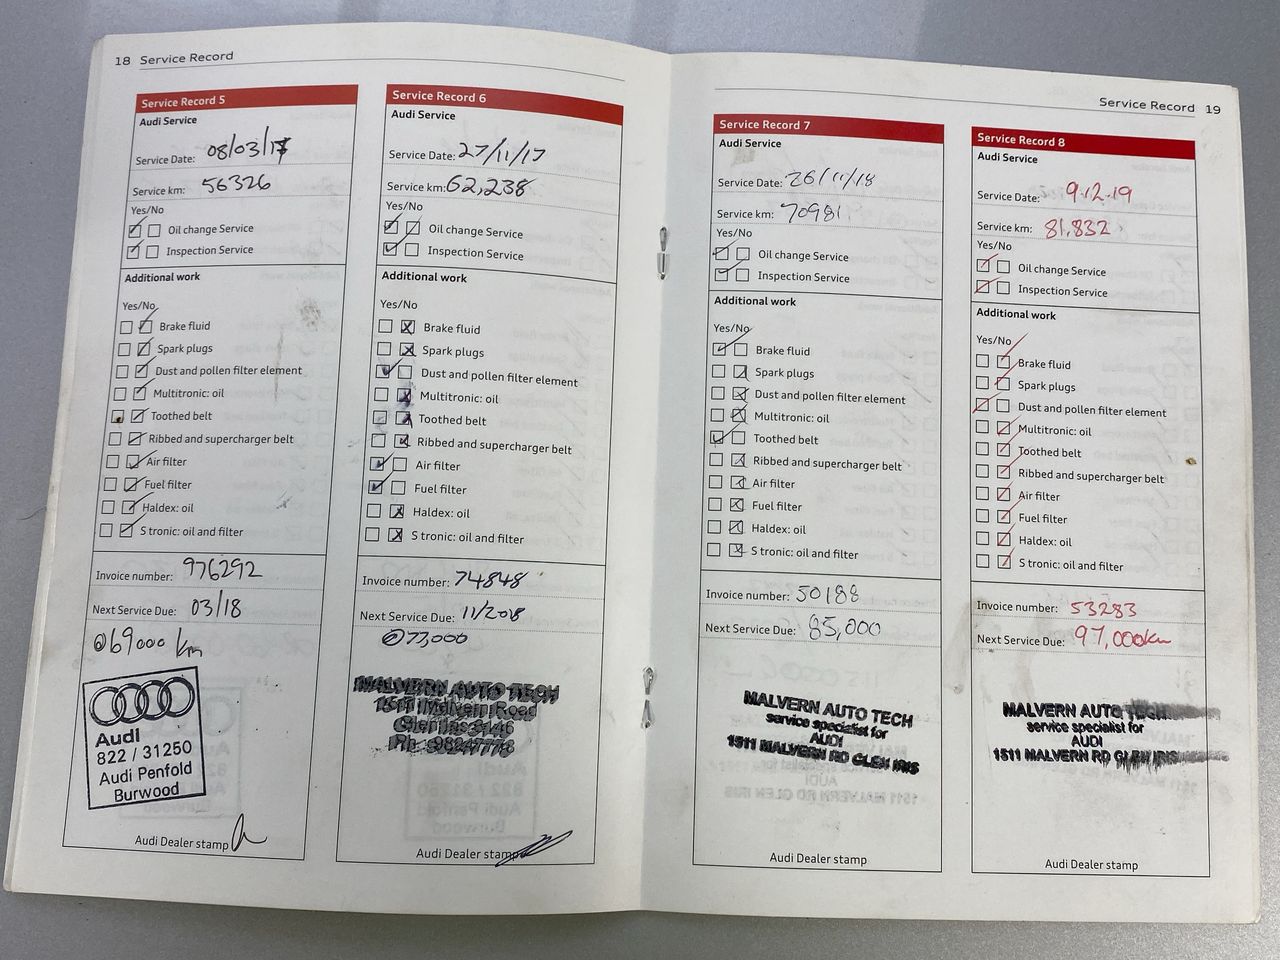 18 Service Record
Service Record 5
Audi Service
Service Date: 08/03/17
Service km: 56326
Yes/No
Oil change Service
Inspection Service
Additional work
Yes/No
Brake fluid
Spark plugs
Dust and pollen filter element
Multitronic: oil
Toothed belt
Ribbed and supercharger belt
Air filter
Fuel filter
Haldex: oil
S tronic: oil and filter
Invoice number: 976292
Next Service Due: 03/18
@69000 km
Audi
822 / 31250
Audi Penfold
Burwood
Audi Dealer stamp
Service Record 6
Audi Service
Service Date: 27/11/17
Service km: 62,238
Yes/No
Oil change Service
Inspection Service
Additional work
Yes/No
Brake fluid
Spark plugs
Dust and pollen filter element
Multitronic: oil
Toothed belt
Ribbed and supercharger belt
Air filter
Fuel filter
Haldex: oil
S tronic: oil and filter
Invoice number: 74848
Next Service Due: 11/2018
@73,000
MALVERN AUTO TECH
1511 Malvern Road
Glen Iris 3146
Ph: 98247778
Audi Dealer stamp
Service Record 19
Service Record 7
Audi Service
Service Date: 26/11/18
Service km: 70981
Yes/No
Oil change Service
Inspection Service
Additional work
Yes/No
Brake fluid
Spark plugs
Dust and pollen filter element
Multitronic: oil
Toothed belt
Ribbed and supercharger belt
Air filter
Fuel filter
Haldex: oil
S tronic: oil and filter
Invoice number: 50188
Next Service Due: 85,000
MALVERN AUTO TECH
service specialist for
AUDI
1511 MALVERN RD GLEN IRIS
Audi Dealer stamp
Service Record 8
Audi Service
Service Date: 9.12.19
Service km: 81,832
Yes/No
Oil change Service
Inspection Service
Additional work
Yes/No
Brake fluid
Spark plugs
Dust and pollen filter element
Multitronic: oil
Toothed belt
Ribbed and supercharger belt
Air filter
Fuel filter
Haldex: oil
S tronic: oil and filter
Invoice number: 53283
Next Service Due: 97,000km
MALVERN AUTO TECH
service specialist for
AUDI
1511 MALVERN RD GLEN IRIS
Audi Dealer stamp